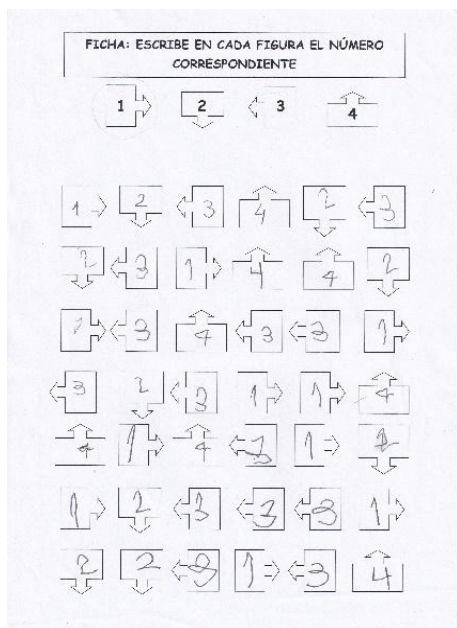 FICHA: ESCRIBE EN CADA FIGURA EL NÚMERO
CORRESPONDIENTE
1 2 3 4
1 2 3 4 2 3
2 3 1 4 4 2
1 3 4 3 3 1
3 2 3 1 1 4
4 1 4 3 1 2
1 2 3 3 3 1
2 2 3 1 3 4